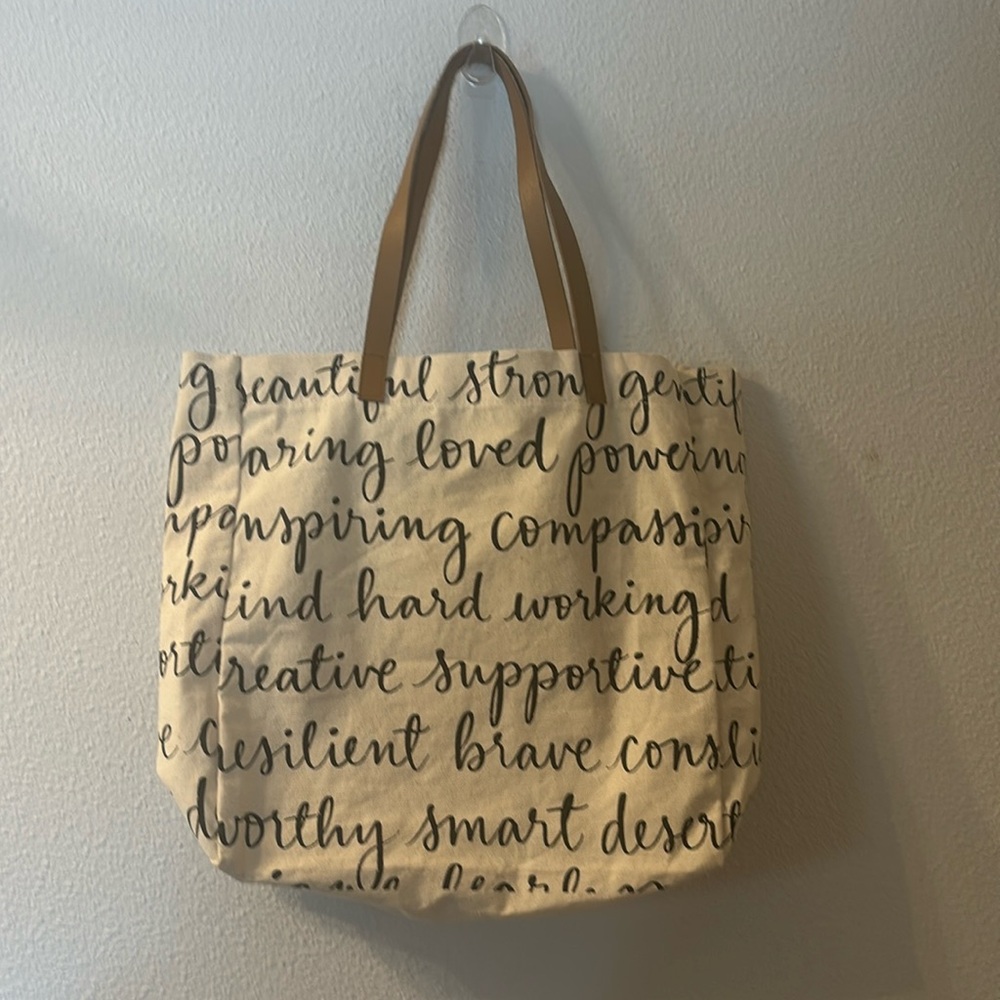 g beautiful strong gentl
po aring loved powerin
npa nspiring compassi pir
rki ind hard working d
orti reative supportive ti
e resilient brave cons li
d worthy smart deser t